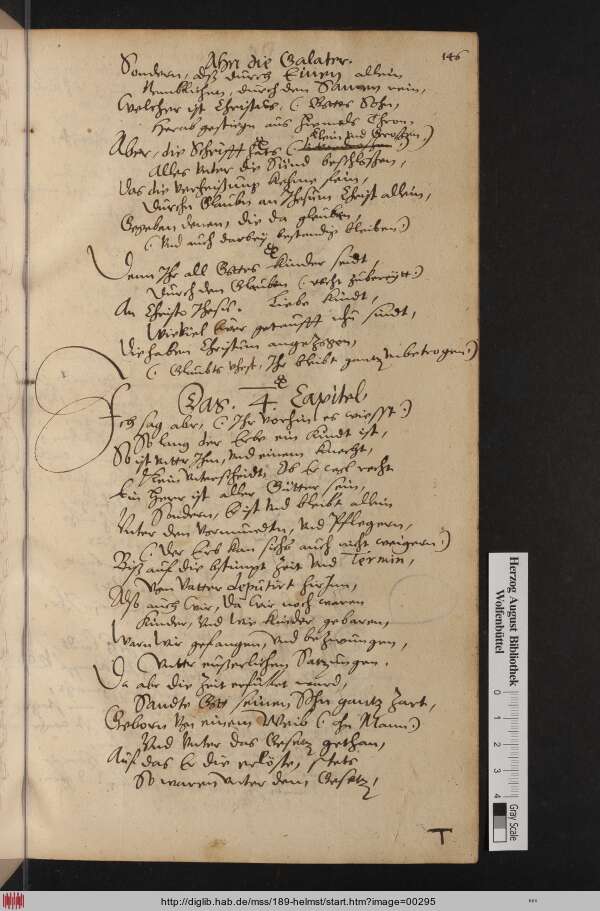 Ahn die Galater.
146
Sondern, daß durch Einen allein
Nemblichen, durch den Saamen rein,
Welcher ist Christus, (: Gottes Sohn,
Herab gestiegn aus Himels Thron.
Klein und Grossen :)
Aber, die Schrifft hats (:
Alles Unter die Sünd beschlossen,
Das die verheissung keme sein,
Durchn Glaubn an Jhesum Christ allein,
Gegeben denen, die da glauben,
(: Und auch darbey bestendig bleiben :)
Denn Ihr all Gottes Kinder seidt,
Durch den Glauben (: recht zubereytt :)
An Christo Jhesu. Liebe Kindt,
Wieviel Ewer getaufft nhu sindt,
Die haben Christum angezogen,
(: Glaubts vhest, Ihr bleibt gantz Unbetrogen :)
Das. 4. Capitel,
Ich sag aber, (: Ihr vorhin es wisst :)
So lang der Erbe ein Kindt ist,
So ist unter Ihm, Und einem Knecht,
Kein Unterscheidt, Ob Er wol recht
Ein Herr ist aller Gütter sein,
Sondern, Er ist Und bleibt allein
Unter den Vormündtn, Und Pflegern,
(: Der Erb kan sichs auch nicht weigern :)
Biß auf die bstimpt Zeit Und Termin,
Vom Vatter deputirt hirInn,
Also auch wir, da wir noch waren
Kinder, Und wie Kinder gebaren,
Warn wir gefangen, Und bezwungen,
Unter eusserlichen Satzungen.
Da aber die Zeit erfüllet ward,
Sandte Gott seinen Sohn gantz Zart,
Geborn Von einem Weib (: ohn Mann :)
Und Unter das Gesetz gethan,
Auf das Er die erlöste, stets
So waren unter dem Gesetz,
T
Herzog August Bibliothek
Wolfenbüttel
0 1 2 3 4
Gray Scale
http://diglib.hab.de/mss/189-helmst/start.htm?image=00295